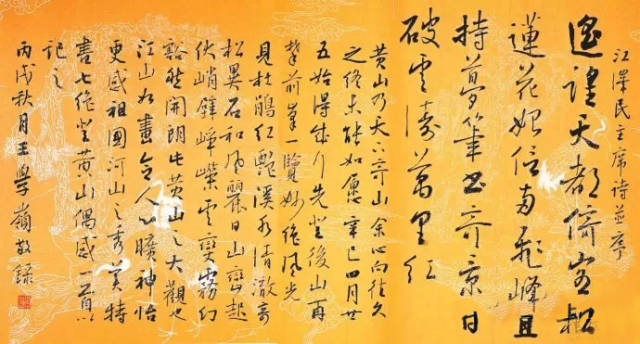 江澤民主席詩並序
遙望天都倚客松
蓮花始信兩飛峰且
持夢筆書奇景日
破雲濤萬里紅
黃山乃天下奇山余心向往久
之終未能如愿辛巳四月廿
五始得成行先登後山再
攀前峯一覽妙絕風光
見杜鵑紅艷溪水清澈奇
松異石和風麗日山巒起
伏峭壁崢嶸雲變霧幻
豁然開朗此黃山之大觀也
江山如畫令人心曠神怡
更感祖國河山之秀美特
書七絕登黃山偶感一首以
記之
丙戌秋月王學嶺敬錄